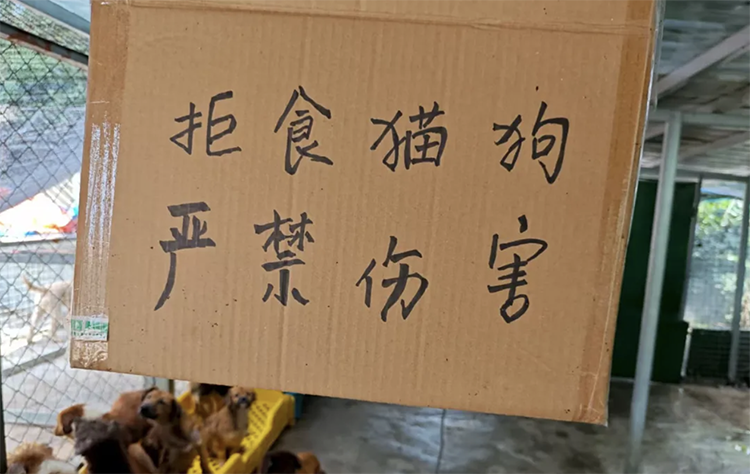 拒食猫狗
严禁伤害